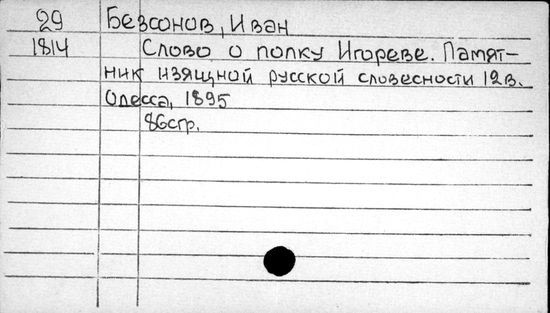 29 Безсонов, Иван
1814 Слово о полку Игореве. Памят-
ник изящной русской словесности 12 в.
Одесса, 1895
86 стр.